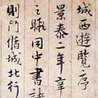 城西遊覽序
景泰二年辛
之暇同中書
則循城北行